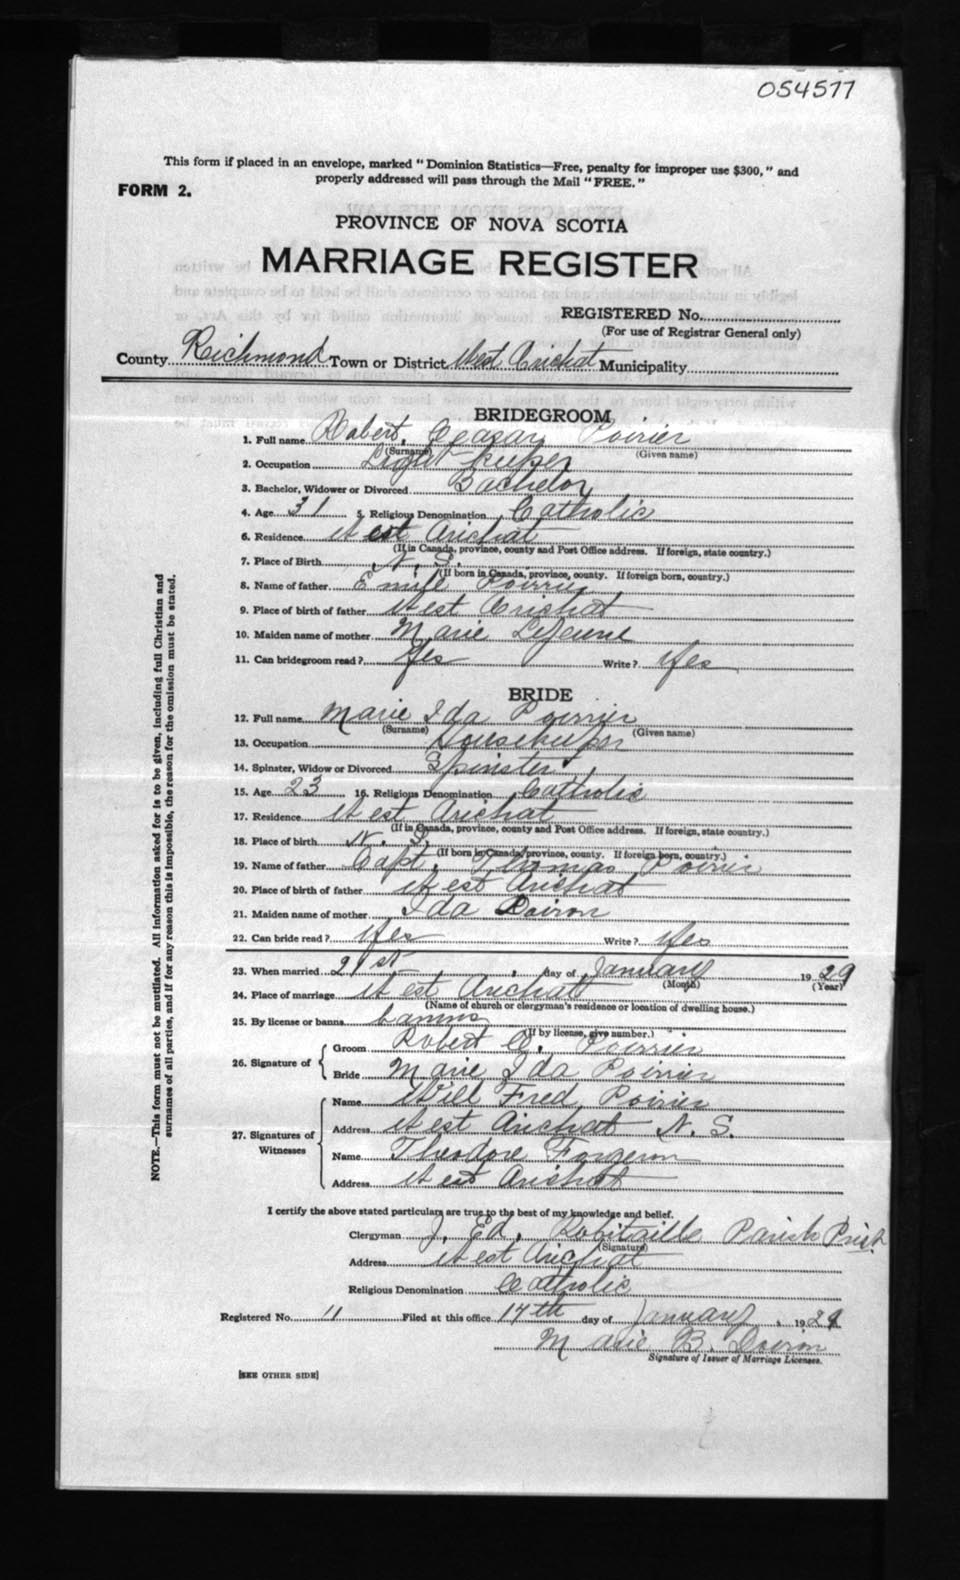 054577
This form if placed in an envelope, marked "Dominion Statistics—Free, penalty for improper use $300," and
properly addressed will pass through the Mail "FREE."
FORM 2.
PROVINCE OF NOVA SCOTIA
MARRIAGE REGISTER
REGISTERED No.
(For use of Registrar General only)
County Richmond Town or District West Arichat Municipality
BRIDEGROOM
1. Full name Robert, Ceasar Poirier
(Surname) (Given name)
2. Occupation Light keeper
3. Bachelor, Widower or Divorced Bachelor
4. Age 31 5. Religious Denomination Catholic
6. Residence West Arichat
(If in Canada, province, county and Post Office address. If foreign, state country.)
7. Place of Birth N. S.
(If born in Canada, province, county. If foreign born, country.)
8. Name of father Emile Poirier
9. Place of birth of father West Arichat
10. Maiden name of mother Marie LeJeune
11. Can bridegroom read? Yes Write? Yes
BRIDE
12. Full name Marie Ida Poirrier
(Surname) (Given name)
13. Occupation Housekeeper
14. Spinster, Widow or Divorced Spinster
15. Age 23 16. Religious Denomination Catholic
17. Residence West Arichat
(If in Canada, province, county and Post Office address. If foreign, state country.)
18. Place of birth N. S.
(If born in Canada, province, county. If foreign born, country.)
19. Name of father Capt. Thomas Poirier
20. Place of birth of father West Arichat
21. Maiden name of mother Ida Doiron
22. Can bride read? Yes Write? Yes
23. When married 21st day of January 1929
(Month) (Year)
24. Place of marriage West Arichat
(Name of church or clergyman's residence or location of dwelling house.)
25. By license or banns banns
(If by license, give number.)
26. Signature of Groom Robert C. Poirrier
Bride Marie Ida Poirrier
27. Signatures of Witnesses Name Will Fred Poirier
Address West Arichat N. S.
Name Theodore Forgeron
Address West Arichat
I certify the above stated particulars are true to the best of my knowledge and belief.
Clergyman J. Ed. Robitaille Parish Priest
(Signature)
Address West Arichat
Religious Denomination Catholic
Registered No. 11 Filed at this office 14th day of January 1929
Marie B. Doiron
Signature of Issuer of Marriage Licenses.
[SEE OTHER SIDE]
NOTE.—This form must not be mutilated. All information asked for is to be given, including full Christian and
surnames of all parties, and if for any reason this is impossible, the reason for the omission must be stated.